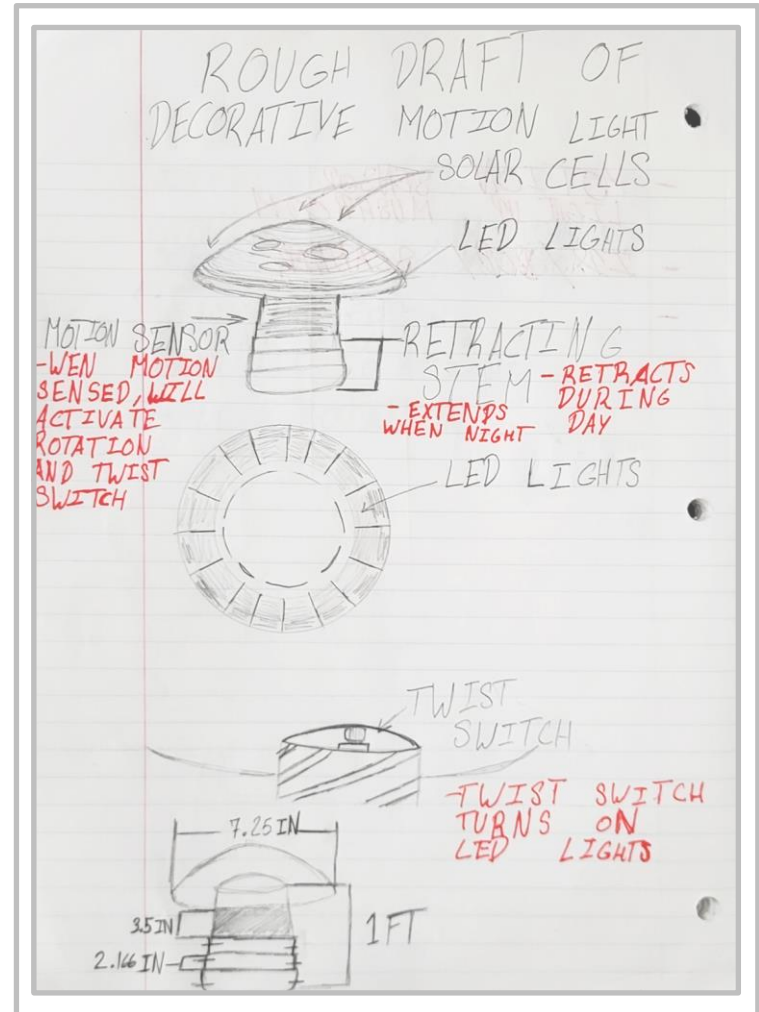 ROUGH DRAFT OF
DECORATIVE MOTION LIGHT
SOLAR CELLS
LED LIGHTS
MOTION SENSOR
-WEN MOTION
SENSED, WILL
ACTIVATE
ROTATION
AND TWIST
SWITCH
RETRACTING
STEM
-RETRACTS
DURING
DAY
-EXTENDS
WHEN NIGHT
LED LIGHTS
TWIST
SWITCH
-TWIST SWITCH
TURNS ON
LED LIGHTS
7.25IN
3.5IN
2.166IN
1FT